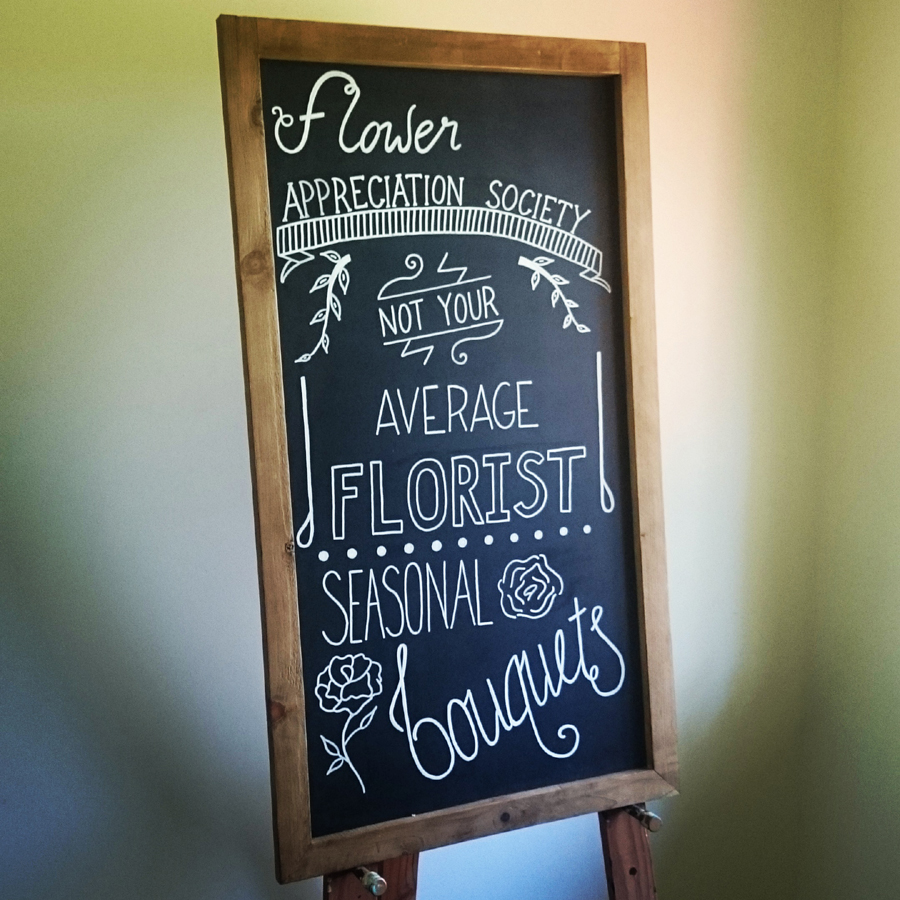 Flower
APPRECIATION SOCIETY
NOT YOUR
AVERAGE
FLORIST
SEASONAL
bouquets